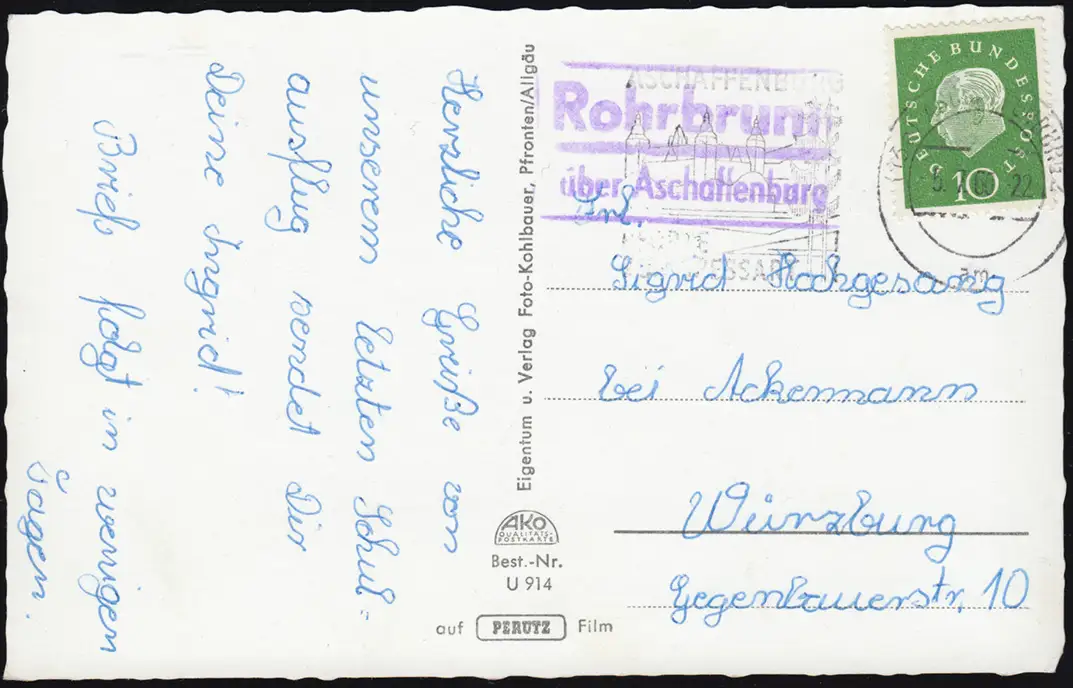 Herzliche Grüße von
unserem letzten Schul=
ausflug sendet Dir
Deine Ingrid!
Brief folgt in wenigen
Tagen.
Eigentum u. Verlag Foto-Kohlbauer, Pfronten/Allgäu
AKO
QUALITÄTS-
POSTKARTE
Best.-Nr.
U 914
auf PERUTZ Film
ASCHAFFENBURG
Rohrbrunn
über Aschaffenburg
DEUTSCHE BUNDESPOST
10
Frl.
Sigrid Hochgesang
bei Ackermann
Würzburg
Gegenbauerstr. 10